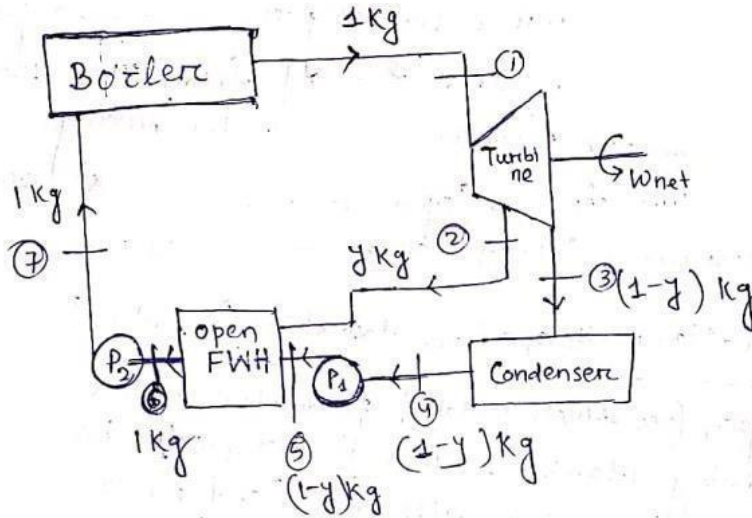 1 Kg
①
Boiler
Turbi
ne
Wnet
1 Kg
②
⑦
y Kg
③ (1-y) Kg
open
FWH
P₂
P₁
Condenser
⑥
④
1 Kg
⑤
(1-y) Kg
(1-y) Kg